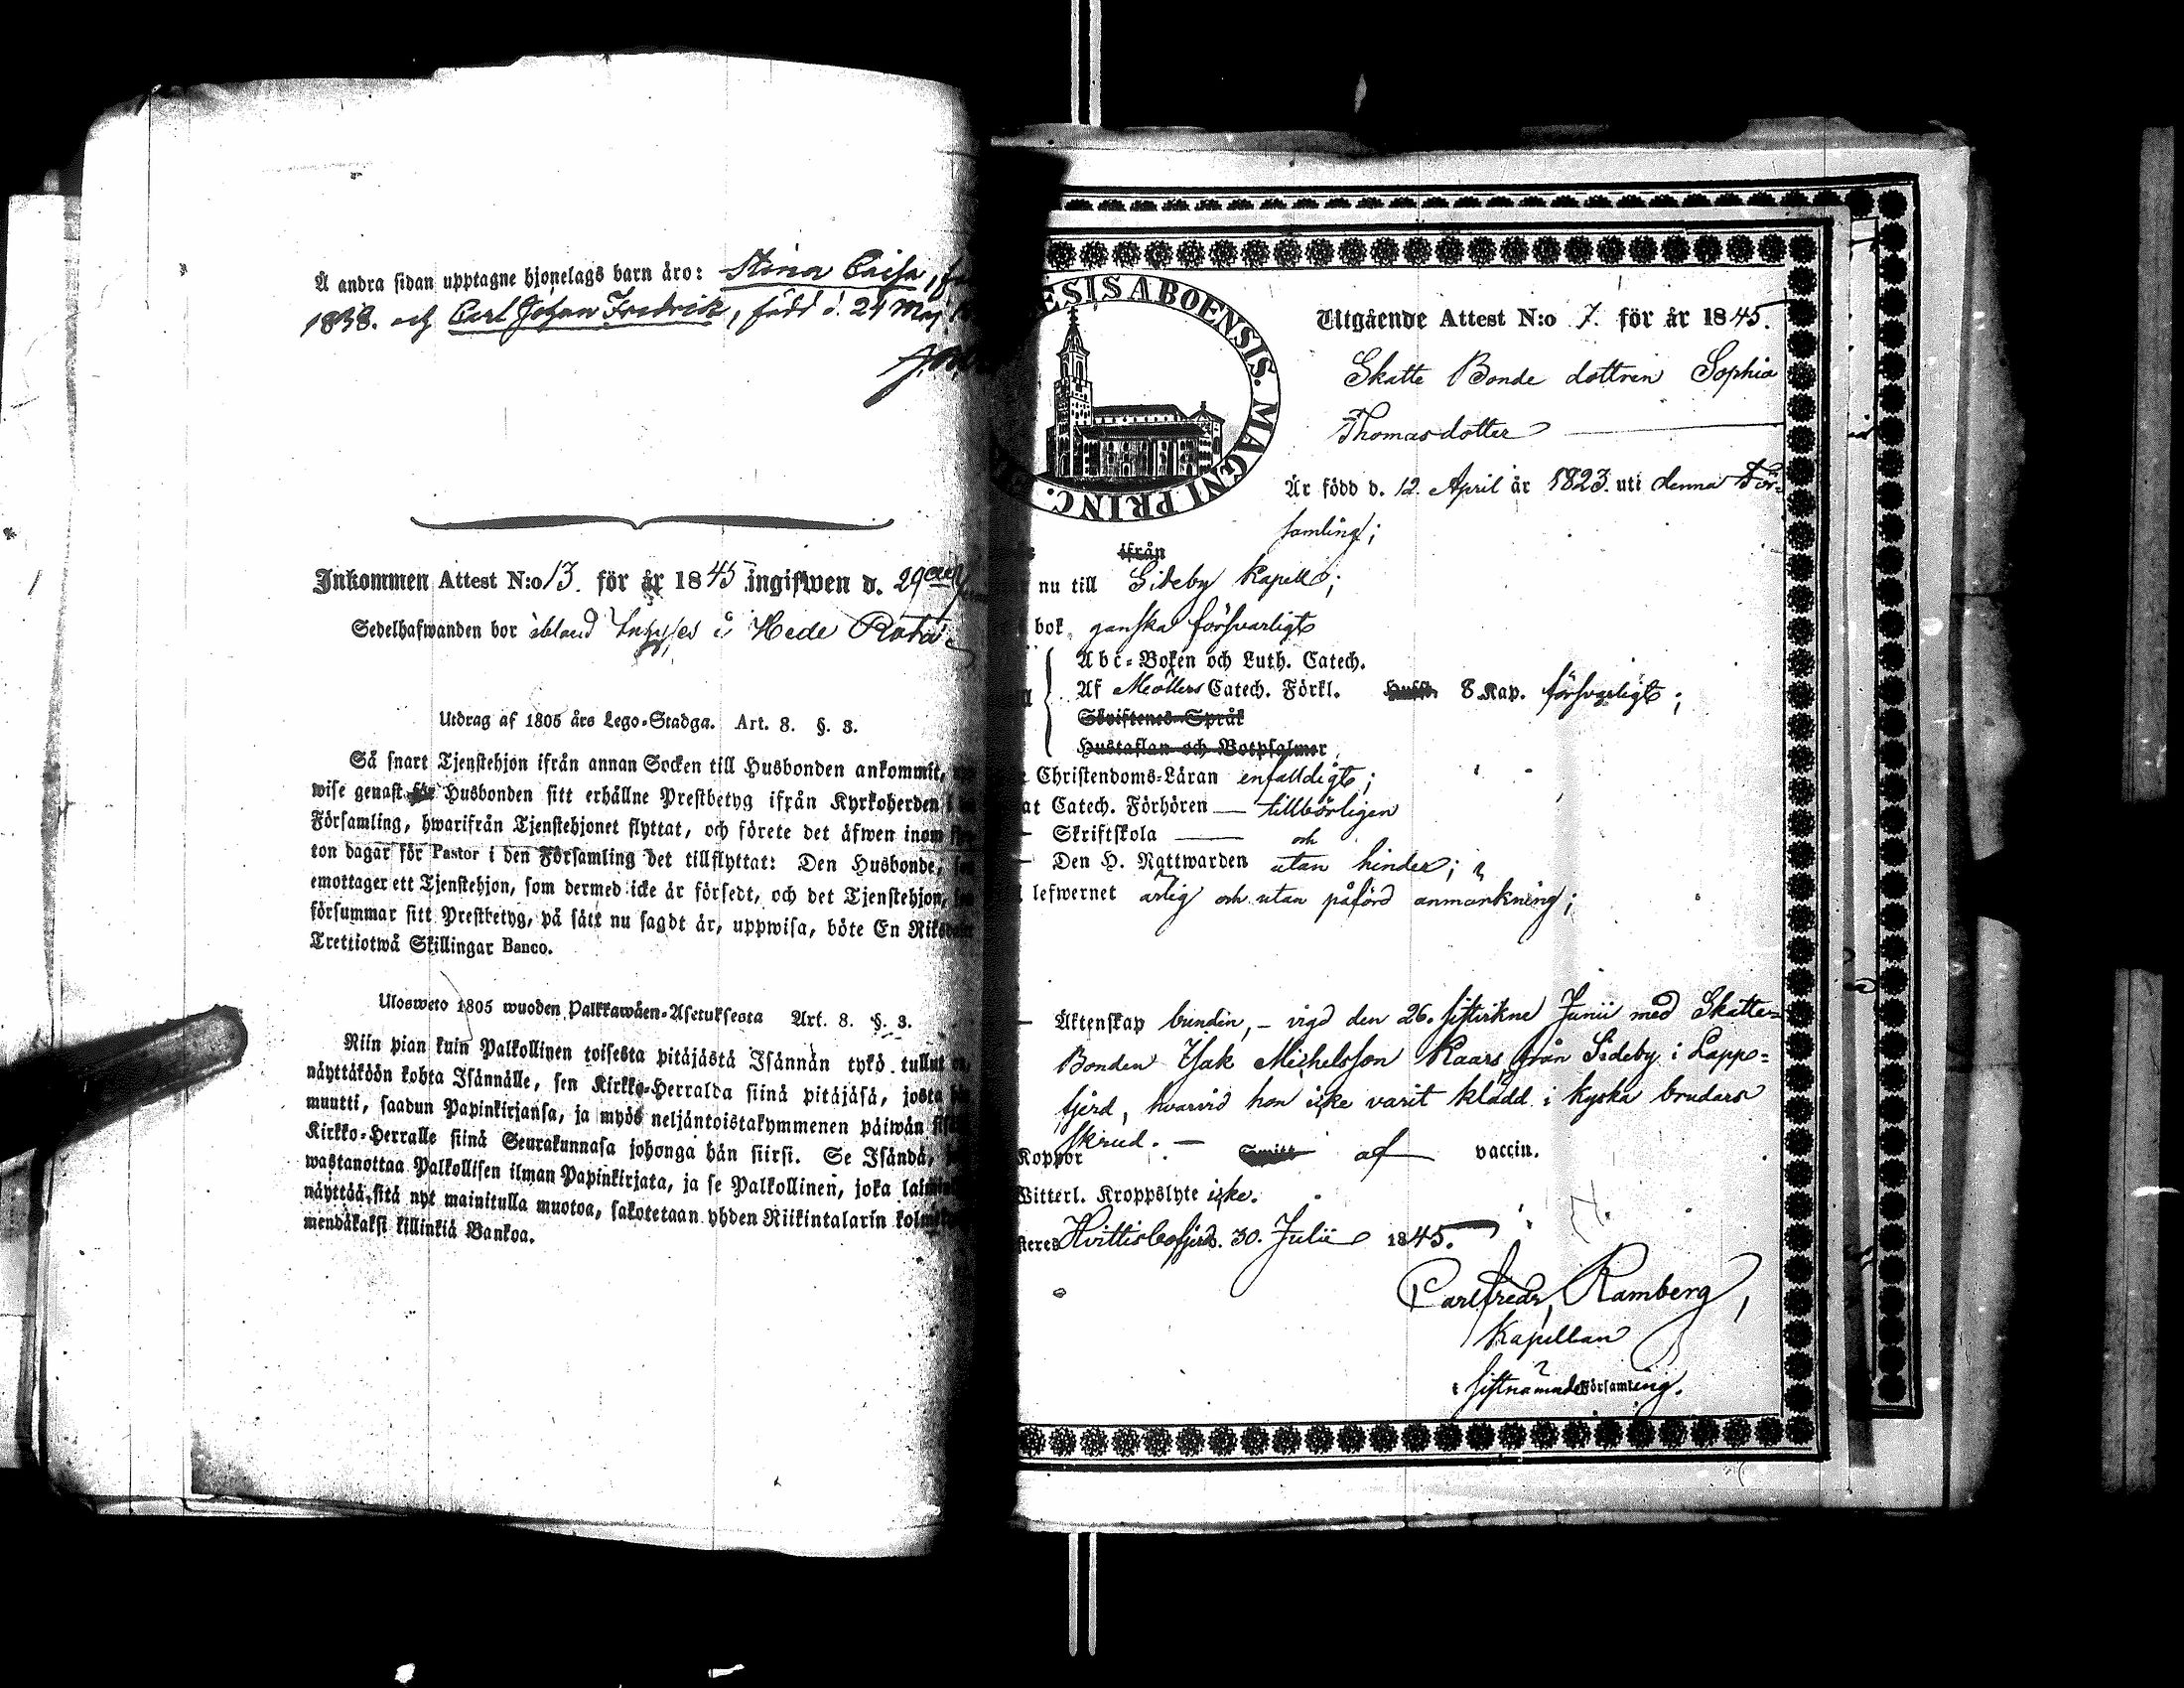 Å andra sidan upptagne hjonelags barn äro: Stina Caisa,
1838. och Carl Johan Fredrik, född d. 24 Maj
Inkommen Attest N:o 13. för år 1845 ingifwen d. 29
Sedelhafwanden bor ibland i Hede Rota
Utdrag af 1805 års Lego-Stadga. Art. 8. §. 3.
Så snart Tjenstehjon ifrån annan Socken till Husbonden ankommit,
wise genast för Husbonden sitt erhållne Prestbetyg ifrån Kyrkoherden i
Församling, hwarifrån Tjenstehjonet flyttat, och förete det äfwen inom
ton dagar för Pastor i den Församling det tillflyttat: Den Husbonde,
emottager ett Tjenstehjon, som dermed icke är försedt, och det Tjenstehjon,
försummar sitt Prestbetyg, på sätt nu sagdt är, uppwisa, böte En Riksdaler
Trettiotwå Skillingar Banco.
Ulosweto 1805 wuoden Palkkawäen-Asetuksesta Art. 8. §. 3.
Niin pian kuin Palkollinen toisesta pitäjästä Isännän tykö tullut on,
näyttäköön kohta Isännälle, sen Kirkko-Herralda siinä pitäjäsä, josta hän
muutti, saadun Papinkirjansa, ja myös neljäntoistakymmenen päiwän
Kirkko-Herralle siinä Seurakunnasa johonga hän siirsi. Se Isändä,
wastanottaa Palkollisen ilman Papinkirjata, ja se Palkollinen, joka
näyttää sitä nyt mainitulla muotoa, sakotetaan yhden Riikintalarin
mendäkaksi killinkiä Bankoa.
ESIS ABOENSIS. MAGNI PRINC.
Utgående Attest N:o 7. för år 1845.
Skatte Bonde dottren Sophia
Thomasdotter
Är född d. 12. April år 1823. uti denna För-
samling;
ifrån
nu till Sideby Kapell;
bok ganska försvarligt
Abc-Boken och Luth. Catech.
Af Möllers Catech. Förkl. Hust. 8 Kap. försvarligt;
Skriftenes Språk
Hustaflan och Botpsalmer
Christendoms-Läran enfaldigt;
at Catech. Förhören — tillbörligen
— Skriftskola — och
— Den H. Nattwarden utan hinder;
lefwernet ärlig och utan påförd anmärkning;
— Äktenskap bunden, – vigd den 26. sistvikne Junii med Skatte-
Bonden Isak Michelsson Kaars, från Sideby i Lappo-
fjerd, hvarvid hon icke varit klädd i kyska brudars
skrud. —
Koppor af vaccin.
Witterl. Kroppslyte icke.
steres Hvittisbofjerd. 30. Julii 1845.
Carl Fredr. Ramberg,
Kapellan
i sistnämnde Församling.